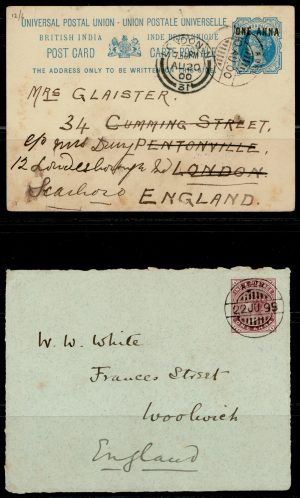 12/6
UNIVERSAL POSTAL UNION - UNION POSTALE UNIVERSELLE
BRITISH INDIA INDE BRITANNIQUE
POST CARD POSTKARTE
THE ADDRESS ONLY TO BE WRITTEN
ONE ANNA
LONDON
AU 20
00
MRS GLAISTER.
34 CUMMING STREET,
c/o Mrs PENTONVILLE,
12 Londesborough Rd LONDON
Scarboro ENGLAND.
22 JU 99
W. W. White
Frances Street
Woolwich
England